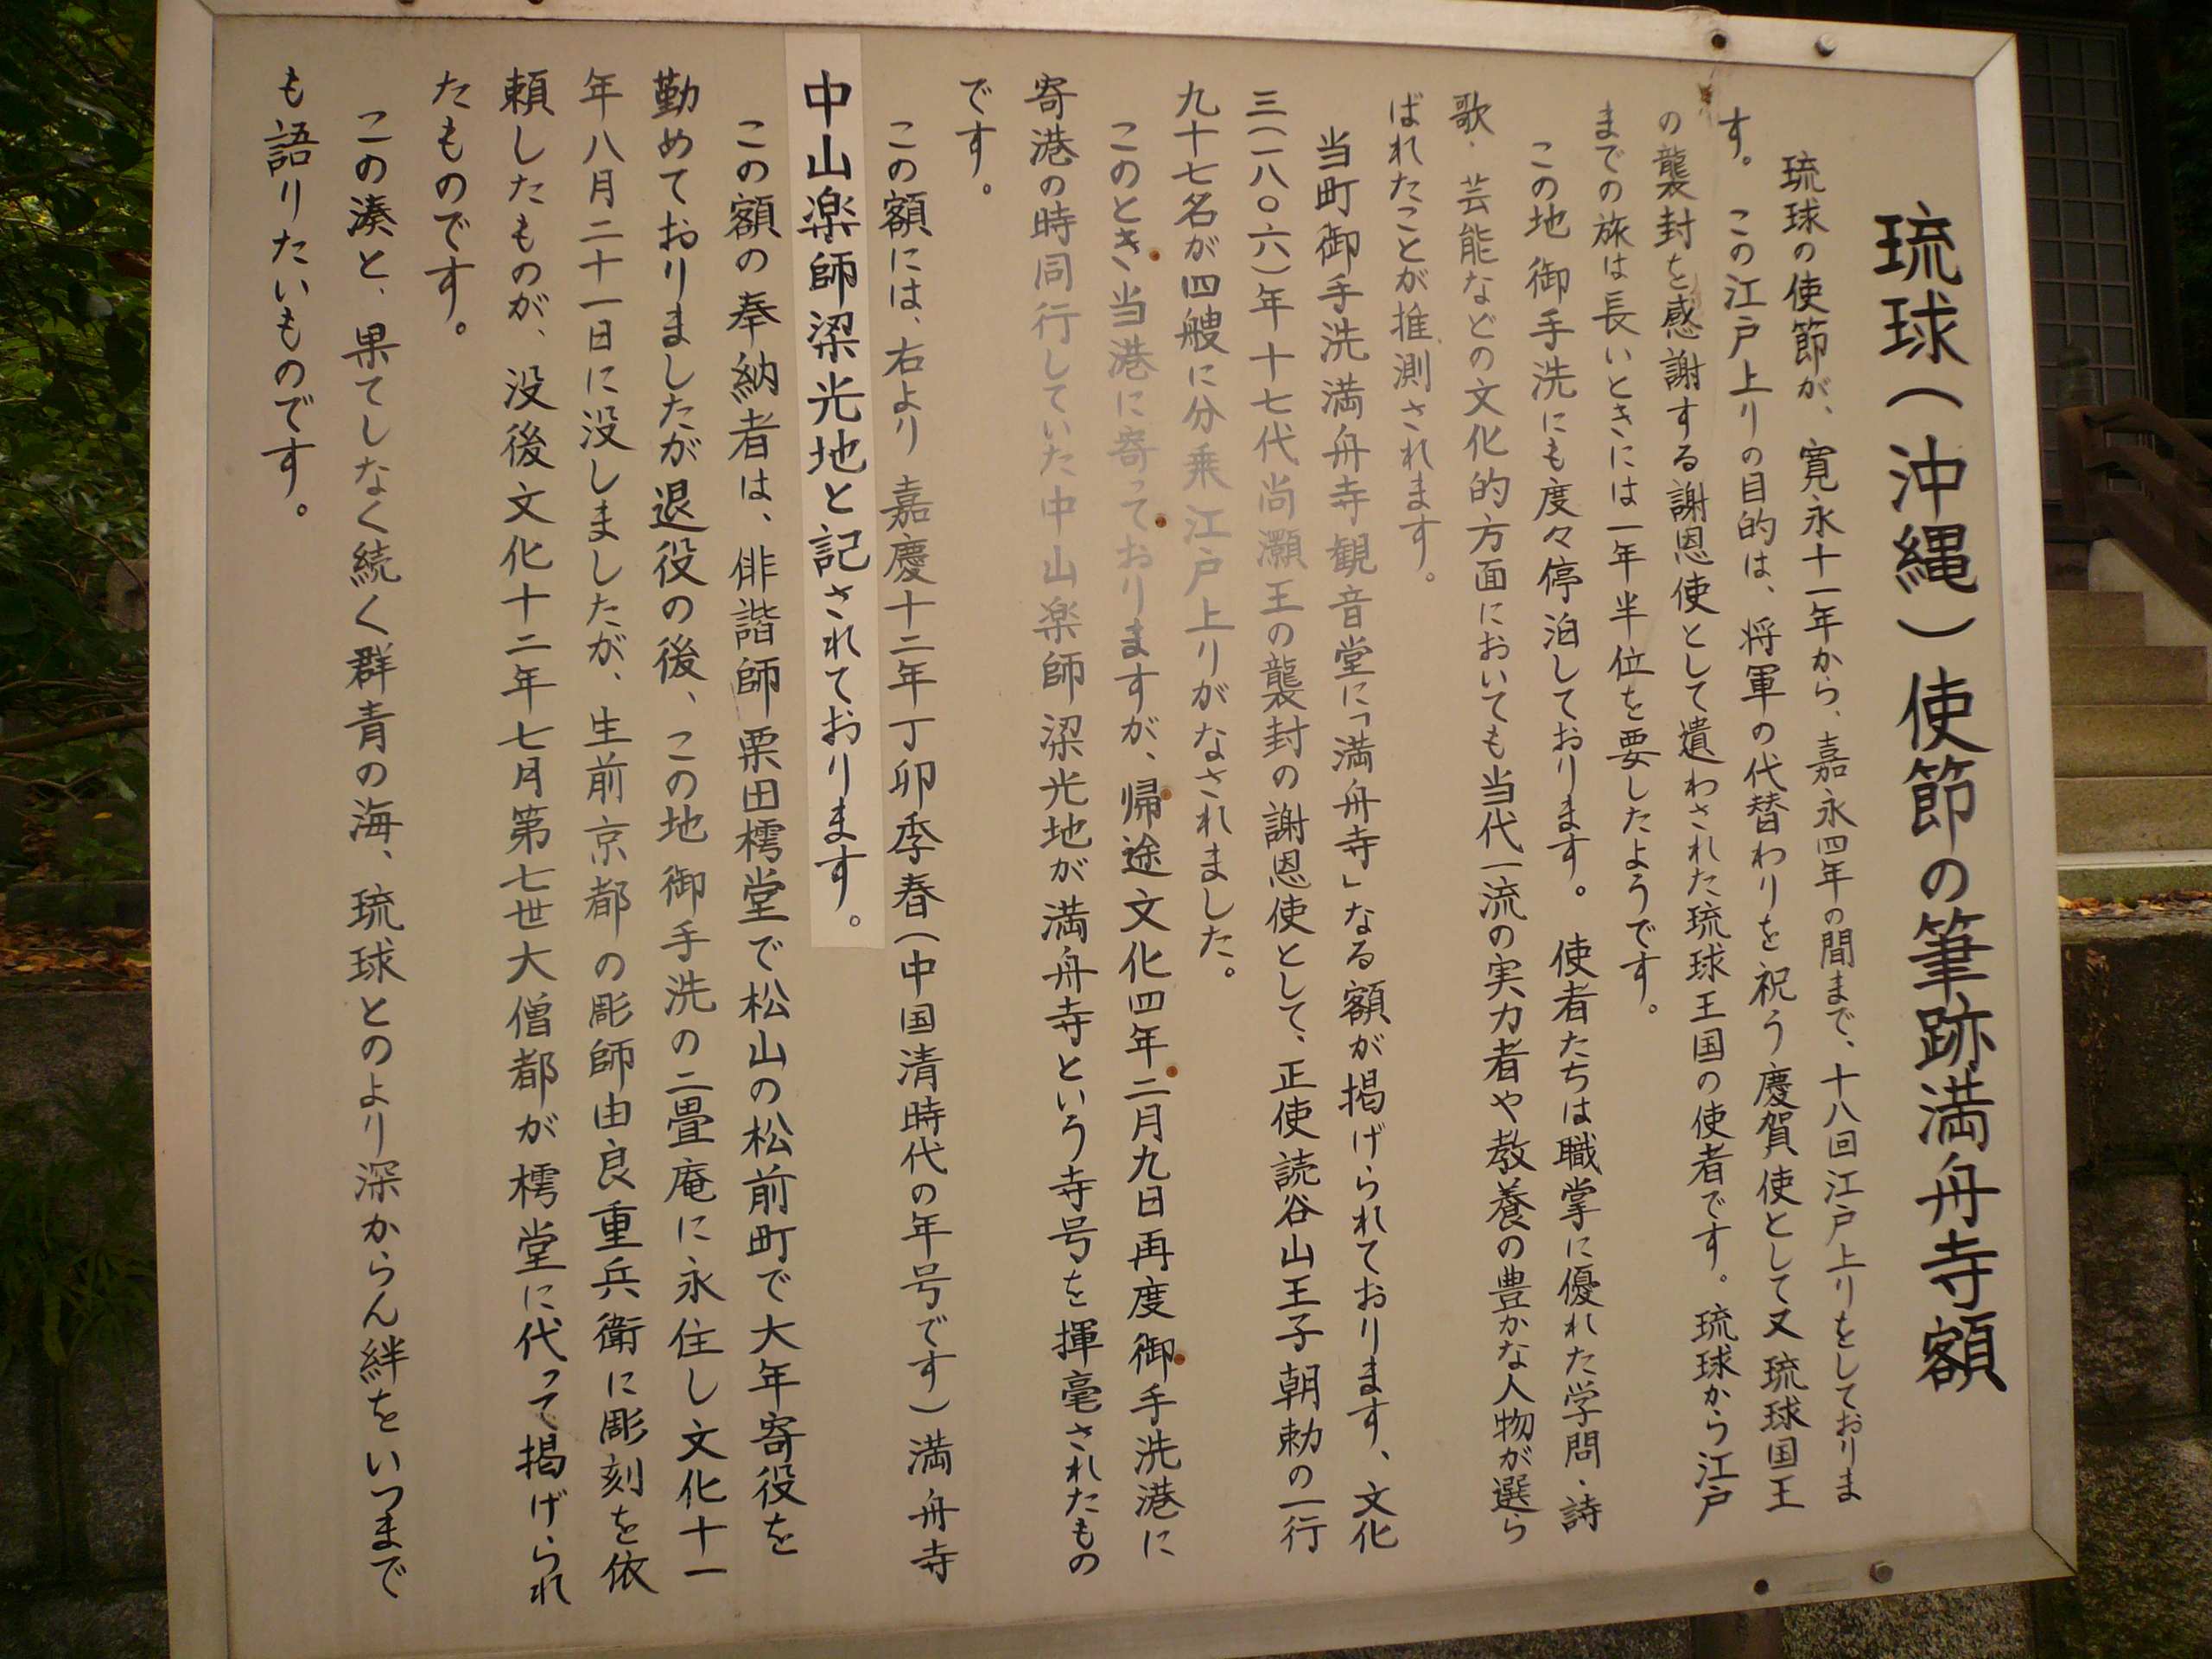 琉球(沖縄)使節の筆跡満舟寺額
琉球の使節が、寛永十一年から、嘉永四年の間まで、十八回江戸上りをしておりま
す。この江戸上りの目的は、将軍の代替わりを祝う慶賀使として又琉球国王
の襲封を感謝する謝恩使として遣わされた琉球王国の使者です。琉球から江戸
までの旅は長いときには一年半位を要したようです。
この地御手洗にも度々停泊しております。使者たちは職掌に優れた学問・詩
歌・芸能などの文化的方面においても当代一流の実力者や教養の豊かな人物が選ら
ばれたことが推測されます。
当町御手洗満舟寺観音堂に「満舟寺」なる額が掲げられております、文化
三(一八〇六)年十七代尚灝王の襲封の謝恩使として、正使読谷山王子朝勅の一行
九十七名が四艘に分乗江戸上りがなされました。
このとき当港に寄っておりますが、帰途文化四年二月九日再度御手洗港に
寄港の時同行していた中山楽師梁光地が満舟寺という寺号を揮毫されたもの
です。
この額には、右より嘉慶十二年丁卯季春(中国清時代の年号です)満舟寺
中山楽師梁光地と記されております。
この額の奉納者は、俳諧師栗田樗堂で松山の松前町で大年寄役を
勤めておりましたが退役の後、この地御手洗の二畳庵に永住し文化十一
年八月二十一日に没しましたが、生前京都の彫師由良重兵衛に彫刻を依
頼したものが、没後文化十二年七月第七世大僧都が樗堂に代って掲げられ
たものです。
この湊と、果てしなく続く群青の海、琉球とのより深からん絆をいつまで
も語りたいものです。